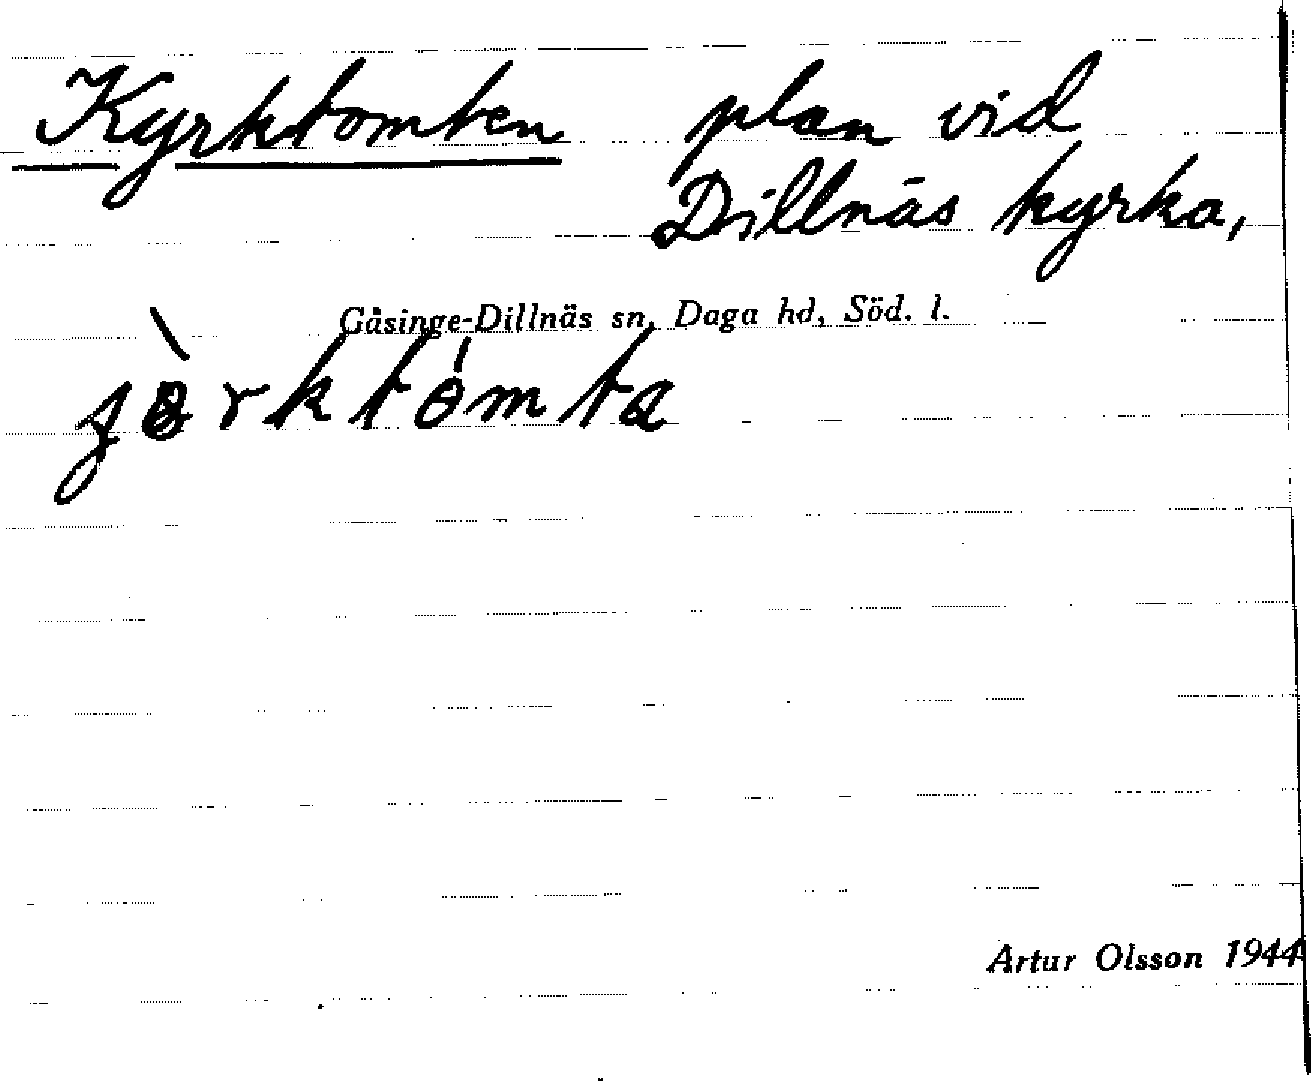 Kyrktomten plan vid
Dillnäs kyrka,
Gåsinge-Dillnäs sn, Daga hd, Söd. l.
Artur Olsson 1944